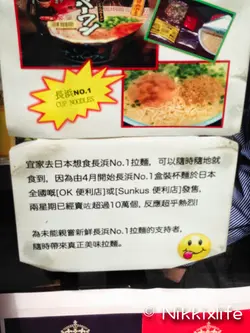 長浜NO.1
CUP NOODLES
宜家去日本想食長浜No.1拉麵, 可以隨時隨地就
食到, 因為由4月開始長浜No.1盒裝杯麵於日本
全國嘅[OK 便利店]或[Sunkus 便利店]發售,
兩星期已經賣咗超過10萬個, 反應超乎熱烈!
為未能親嘗新鮮長浜No.1拉麵的支持者,
隨時帶來真正美味拉麵。
© Nikkixlife